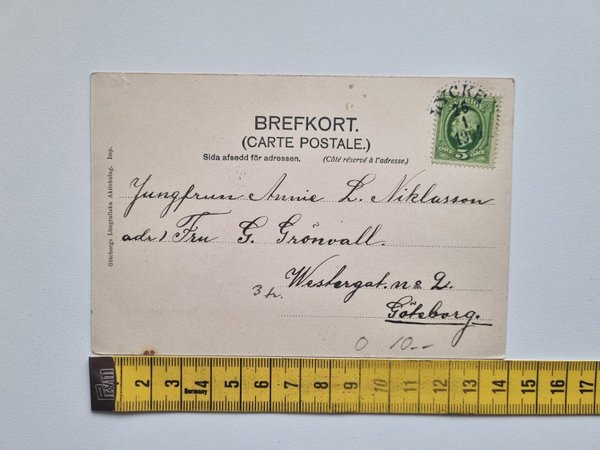 BREFKORT.
(CARTE POSTALE.)
Sida afsedd för adressen. (Côté réservé à l'adresse.)
Jungfrun Annie L. Niklasson
adr) Fru G. Grönvall.
Westergat. no 2.
3 tr.
Göteborg.
0 10--
Göteborgs Litografiska Aktiebolag. Imp.
RYCKE
1
ÖRE 5 ÖRE
2 3 4 5 6 7 8 9 10 11 12 13 14 15 16 17
Germany